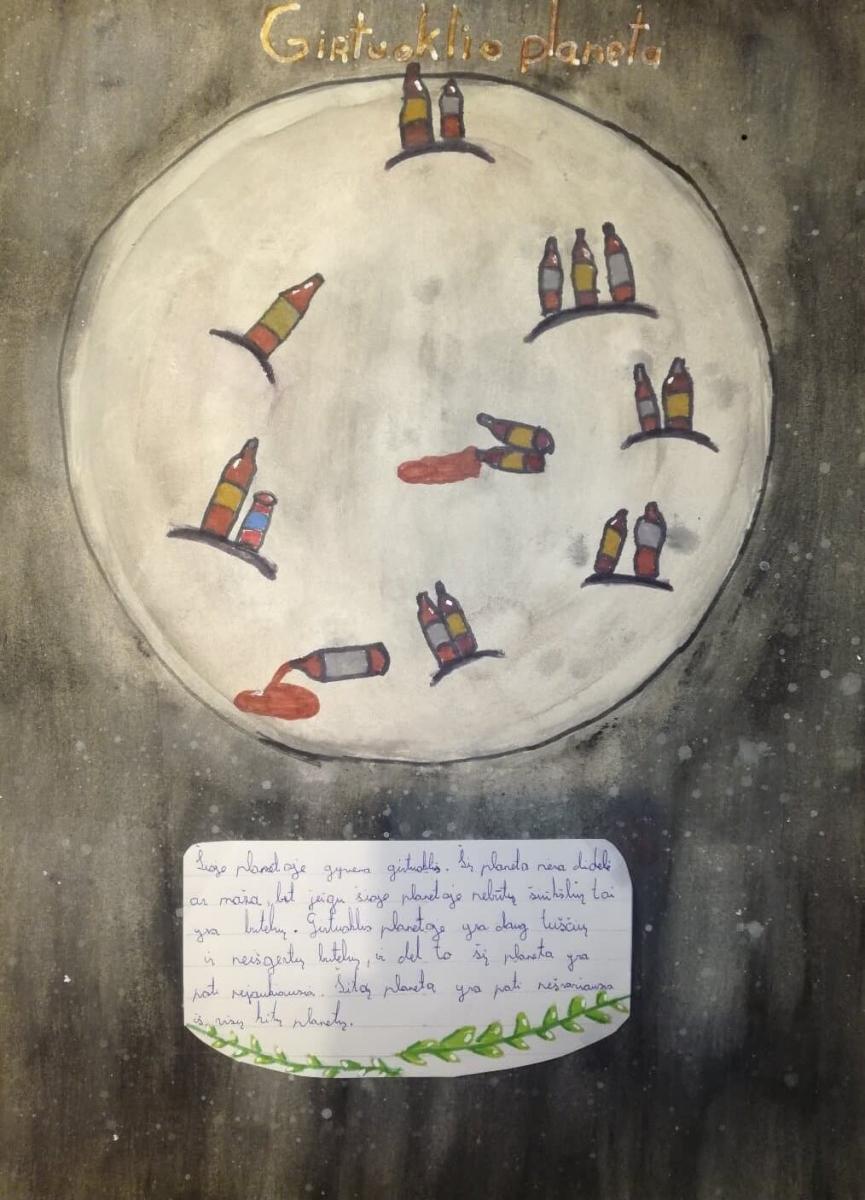 Girtuoklio planeta
Šioje planetoje gyvena girtuoklis. Ši planeta nėra didelė
ar maža, bet jeigu šioje planetoje nebūtų šiukšlių tai
yra butelių. Girtuoklio planetoje yra daug tuščių
ir neišgertų butelių, ir dėl to ši planeta yra
pati nejaukiausia. Šitoj planeta yra pati nešvariausia
iš visų kitų planetų.